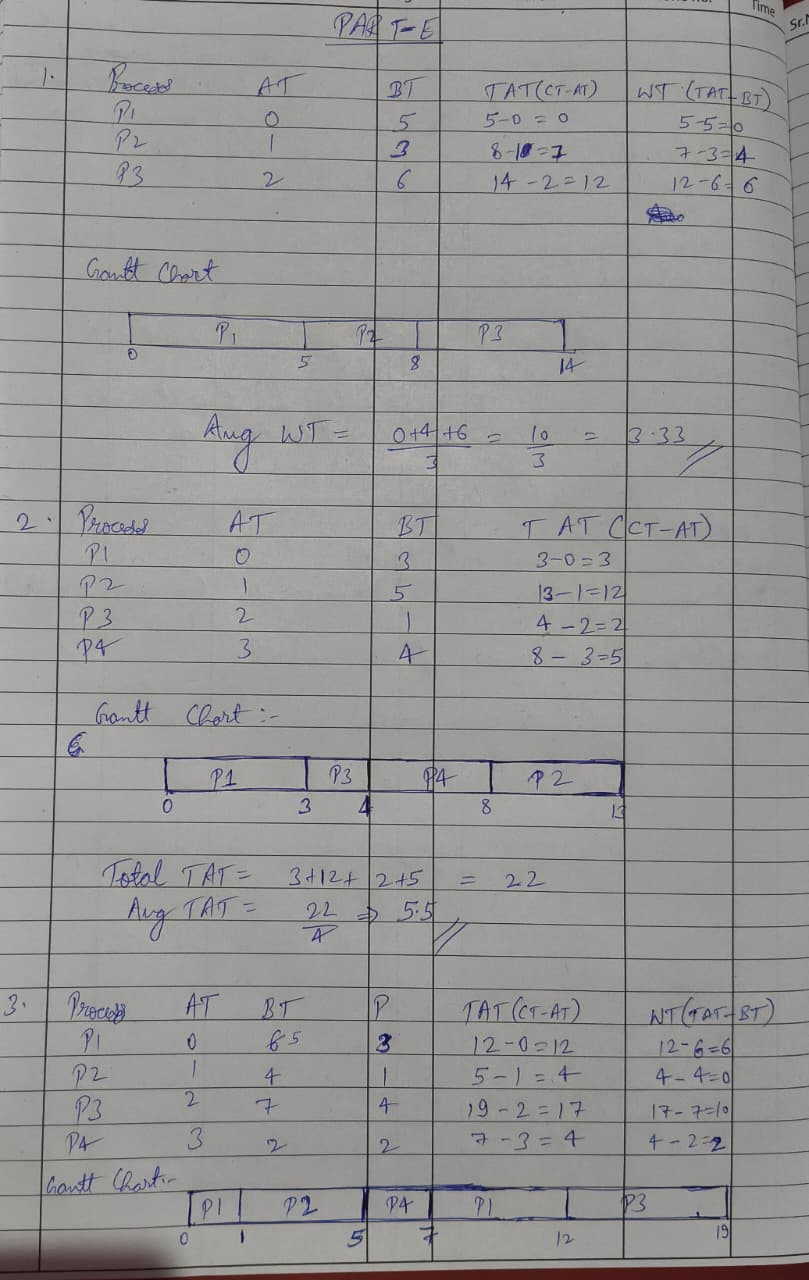 Time
Sr.N
PART-E
1. Process AT BT TAT(CT-AT) WT (TAT-BT)
P1 0 5 5-0 = 0 5-5=0
P2 1 3 8-1=7 7-3=4
P3 2 6 14-2=12 12-6=6
Gantt Chart
P1 P2 P3
0 5 8 14
Avg WT = 0+4+6/3 = 10/3 = 3.33
2. Process AT BT TAT (CT-AT)
P1 0 3 3-0=3
P2 1 5 13-1=12
P3 2 1 4-2=2
P4 3 4 8-3=5
Gantt Chart :-
P1 P3 P4 P2
0 3 4 8 13
Total TAT = 3+12+2+5 = 22
Avg TAT = 22/4 ⇒ 5.5
3. Process AT BT P TAT(CT-AT) WT(TAT-BT)
P1 0 3 12-0=12 12-6=6
P2 1 4 1 5-1=4 4-4=0
P3 2 7 4 19-2=17 17-7=10
P4 3 2 2 7-3=4 4-2=2
Gantt Chart:-
P1 P2 P4 P1 P3
0 1 5 7 12 19